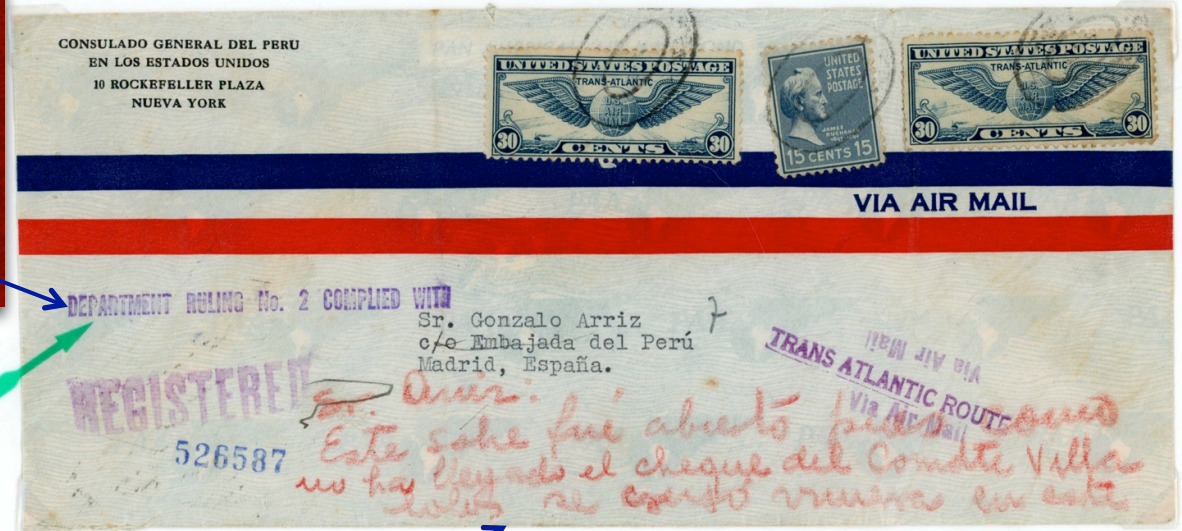 CONSULADO GENERAL DEL PERU
EN LOS ESTADOS UNIDOS
10 ROCKEFELLER PLAZA
NUEVA YORK
UNITED STATES POSTAGE
TRANS-ATLANTIC
U.S.
AIR
MAIL
30 CENTS 30
UNITED
STATES
POSTAGE
JAMES
BUCHANAN
15 CENTS 15
UNITED STATES POSTAGE
TRANS-ATLANTIC
U.S.
AIR
MAIL
30 CENTS 30
VIA AIR MAIL
DEPARTMENT RULING No. 2 COMPLIED WITH
Sr. Gonzalo Arriz
c/o Embajada del Perú
Madrid, España.
7
Via Air Mail
TRANS ATLANTIC ROUTE
Via Air Mail
REGISTERED
526587
Sr. Arriz:
Este sobe fué abierto pero como
no ha llegado el cheque del Comdte Villa
se en este